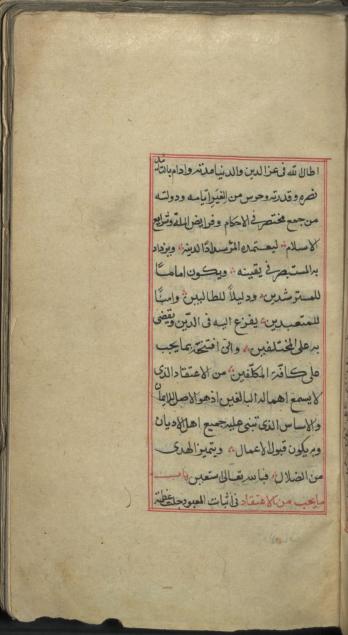 اطال الله فى عز الدين والدنيا مدته وادام بالتأييد
نصره وقدرته وحرس من الغير ايامه ودولته
من جمع مختصر فى الاحكام وفرايض الملة وشرايع
الاسلام ليعتمده المرتاد لدينه ويزداد
به المستبصر فى يقينه ويكون اماما
للمسترشدين ودليلا للطالبين وامينا
للمتعبدين يفزع اليه فى الدين ويقضى
به على المختلفين وانى افتتحه بما يجب
على كافة المكلفين من الاعتقاد الذى
لا يسع اهماله البالغين اذ هو الاصل للايمان
والاساس الذى تبنى عليه جميع اهل الاديان
وبه يكون قبول الاعمال ويتميز الهدى
من الضلال فبالله تعالى نستعين باب
ما يجب من الاعتقاد فى اثبات المعبود جلت عظمته